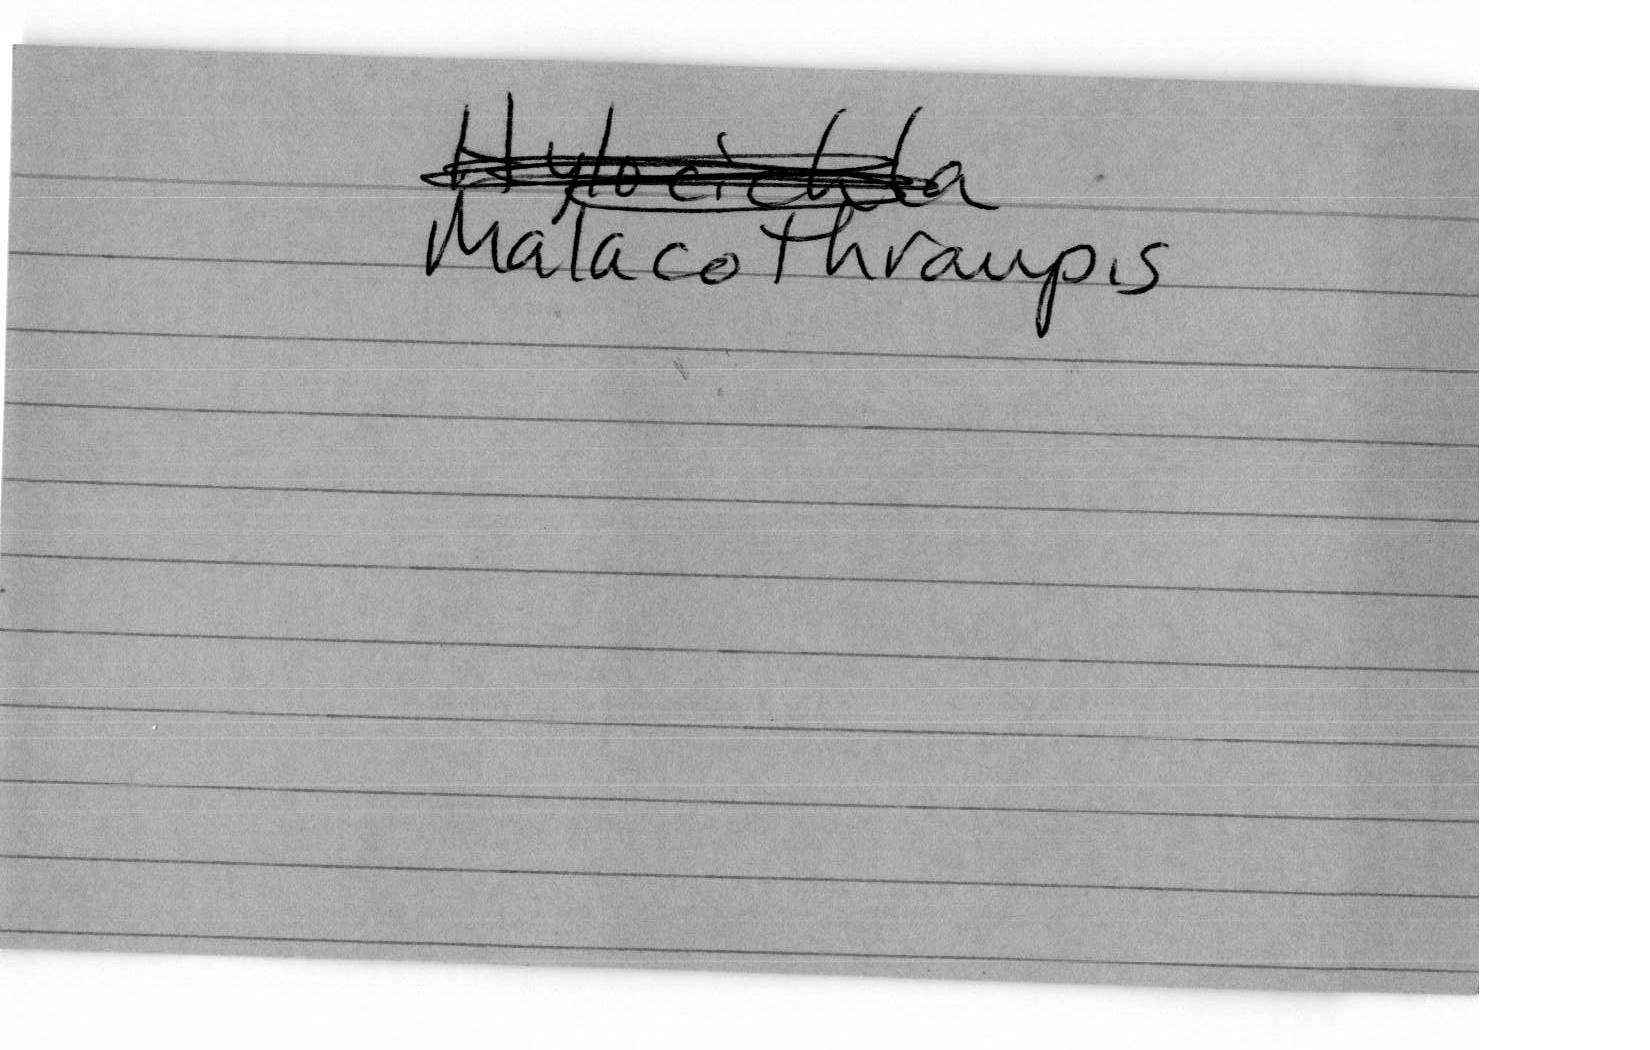 Hylocichla
Malacothraupis